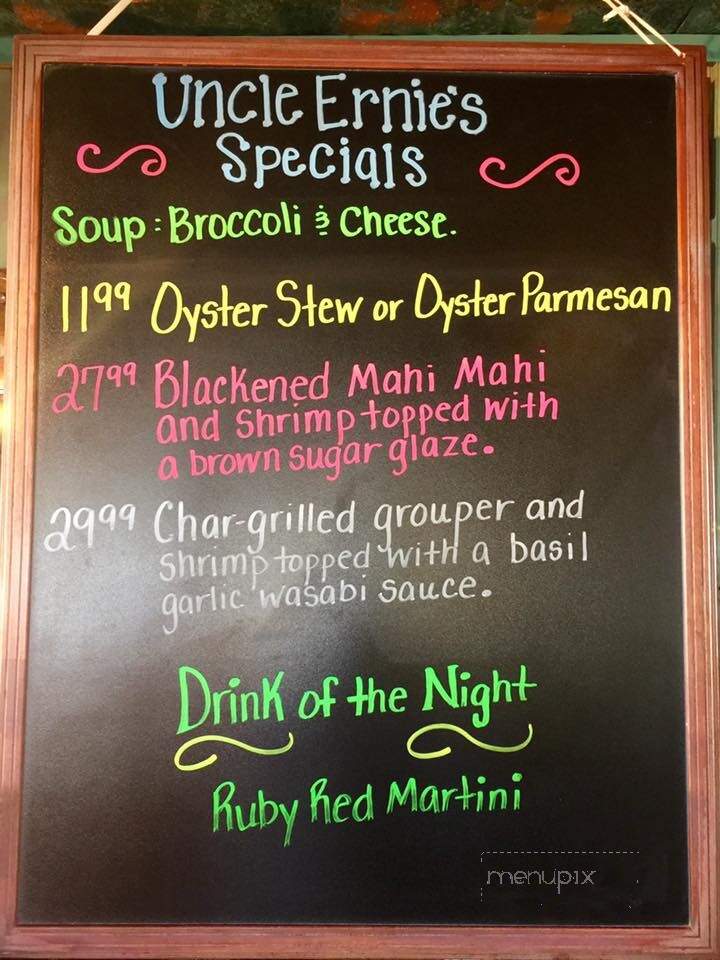 Uncle Ernie's
Specials
Soup: Broccoli & Cheese.
11.99 Oyster Stew or Oyster Parmesan
27.99 Blackened Mahi Mahi
and Shrimp topped with
a brown sugar glaze.
29.99 Char-grilled grouper and
shrimp topped with a basil
garlic wasabi sauce.
Drink of the Night
Ruby Red Martini
menupix